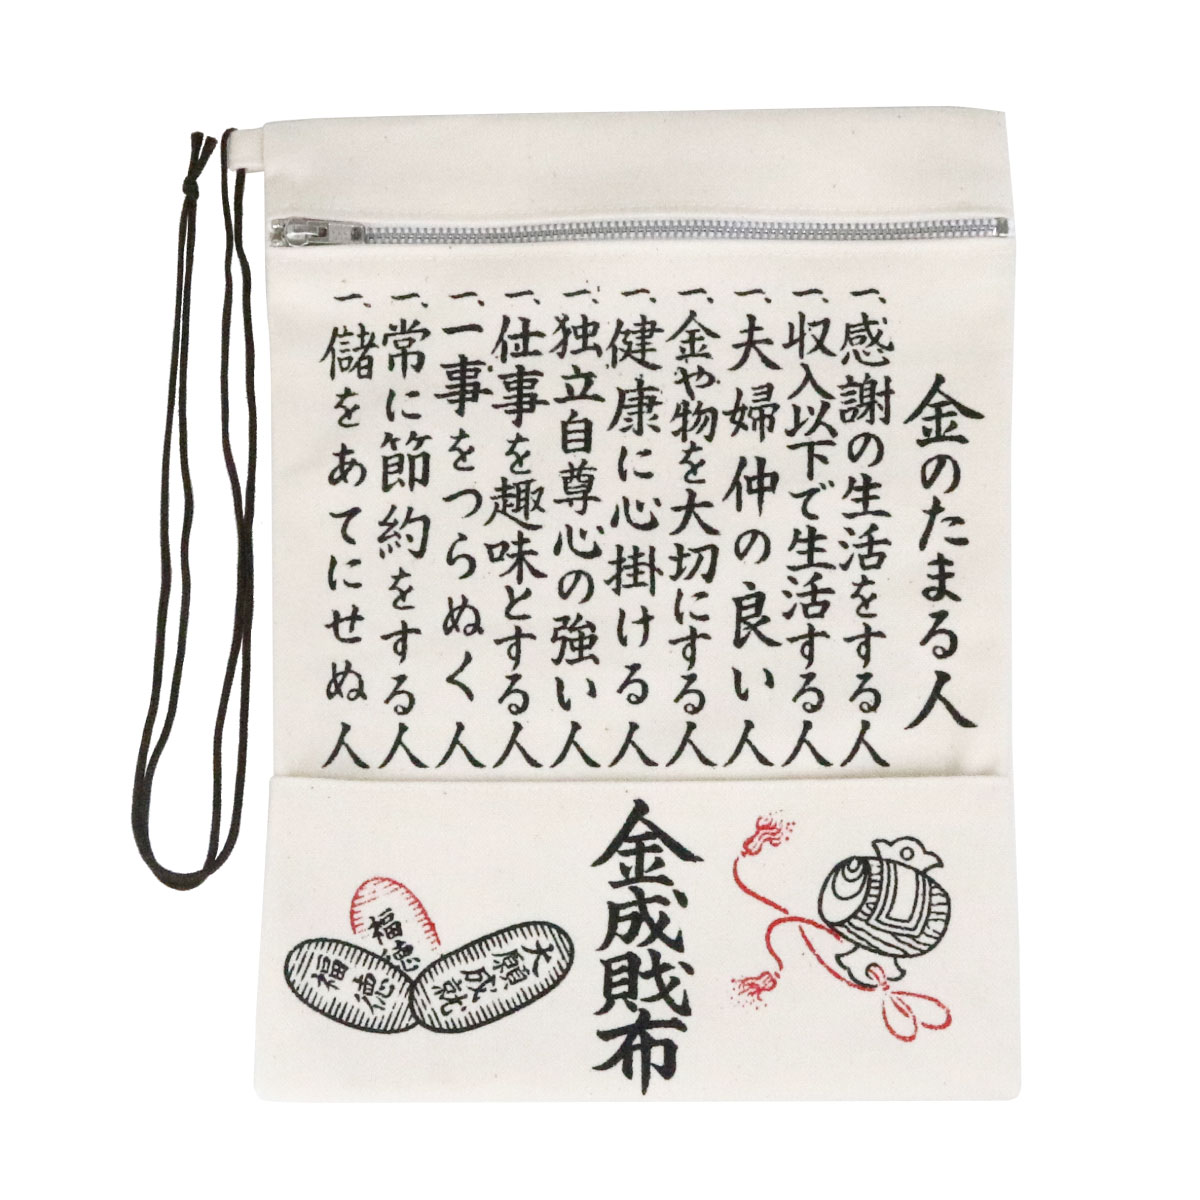 金のたまる人
一、感謝の生活をする人
一、収入以下で生活する人
一、夫婦仲の良い人
一、金や物を大切にする人
一、健康に心掛ける人
一、独立自尊心の強い人
一、仕事を趣味とする人
一、一事をつらぬく人
一、常に節約をする人
一、儲をあてにせぬ人
金成財布
大願成就
福徳
福徳